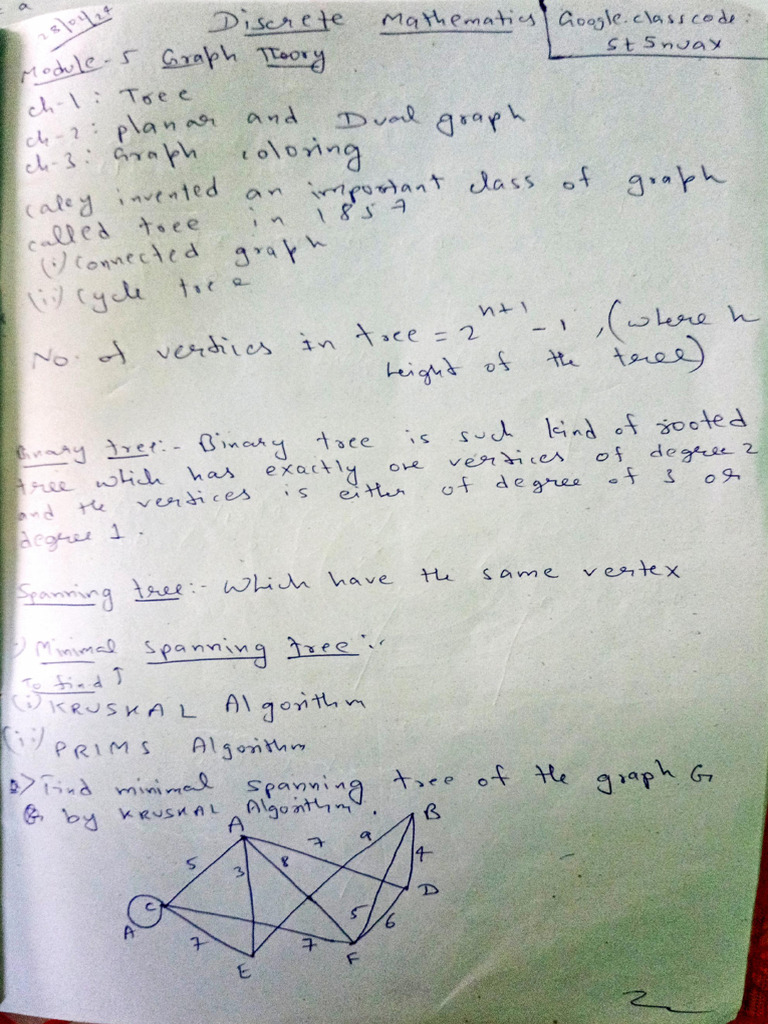 a
28/02/24
Discrete Mathematics
Google.classcode:
5t5nvax
Module-5 Graph Teory
ch-1: Tree
ch-2: planar and Dual graph
ch-3: Graph coloring
caley invented an important class of graph
called tree in 1857
(i) connected graph
(ii) Cycle tree
No. of vertices in tree = 2^{h+1} - 1, (where h
height of the tree)
Binary tree:- Binary tree is such kind of rooted
tree which has exactly one vertices of degree 2
and the vertices is either of degree of 3 or
degree 1.
Spanning tree:- which have the same vertex
Minimal spanning tree:-
To find ↑
(i) KRUSKAL Algorithm
(ii) PRIMS Algorithm
Q> Find minimal spanning tree of the graph G
by KRUSKAL Algorithm.
A B
5 3 8 7 9 4
C D
A 5 6
7 7
E F